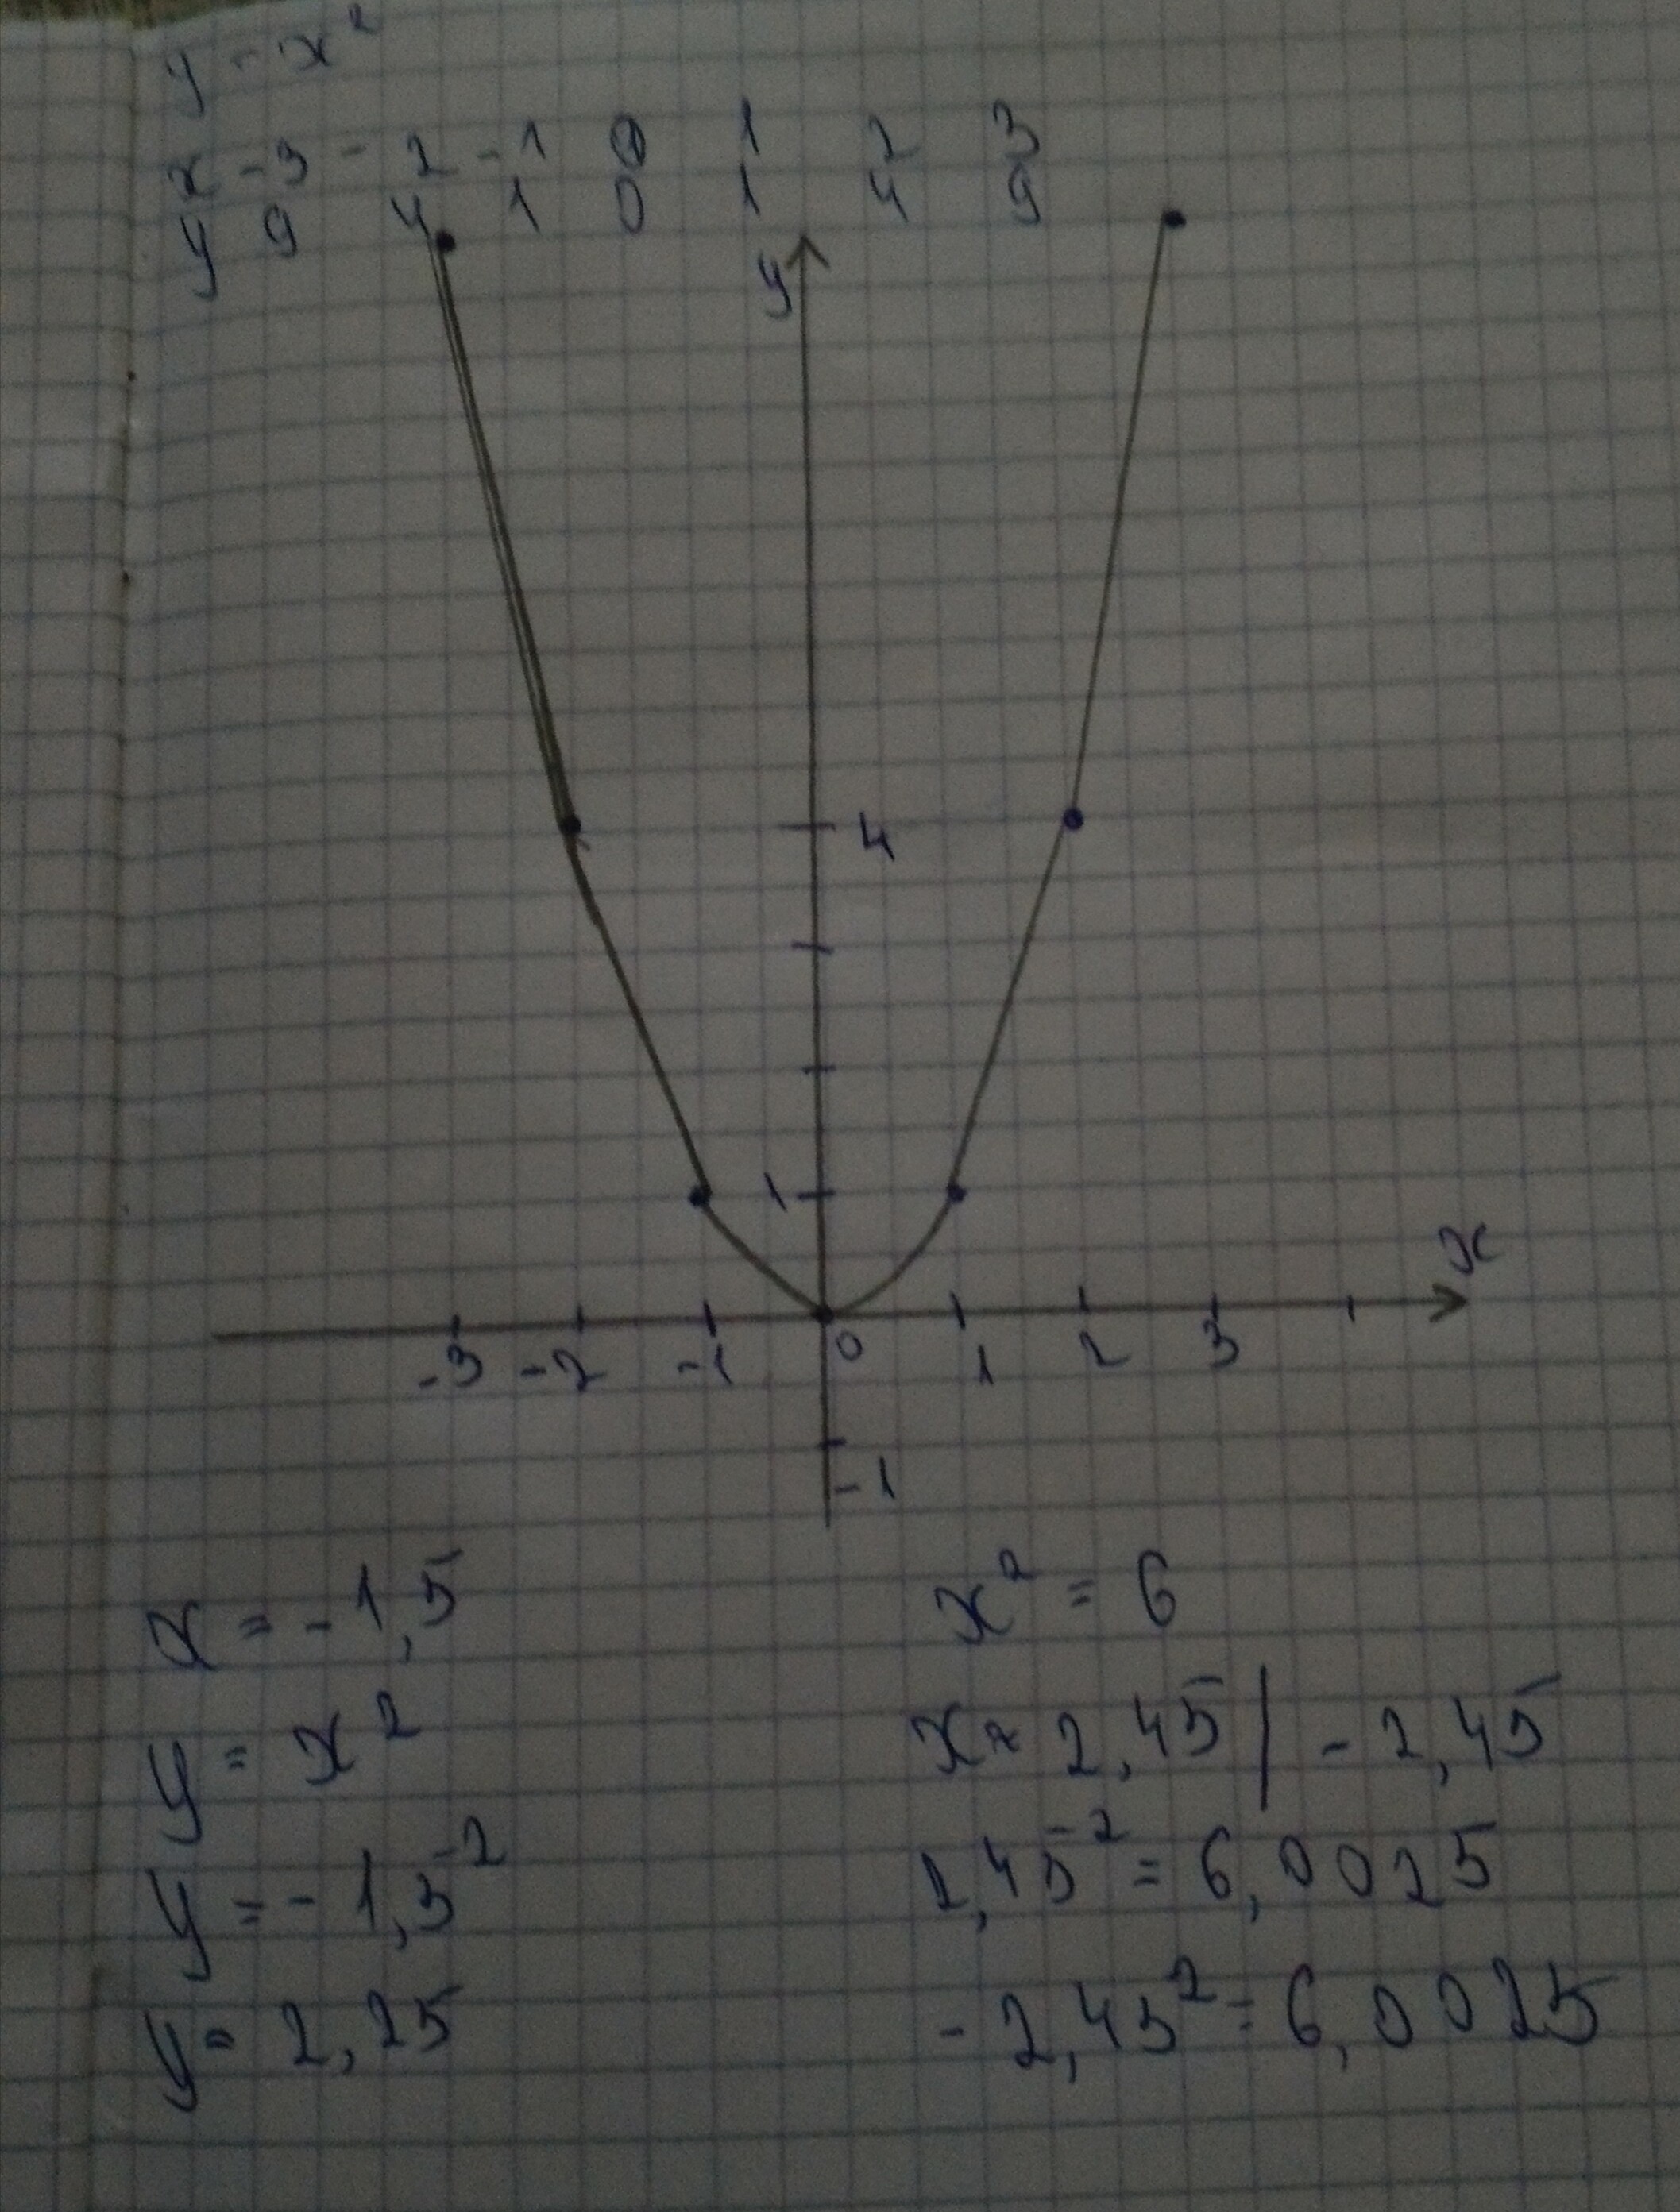 y = x²
x -3 -2 -1 0 1 2 3
y 9 4 1 0 1 4 9
y
4
1
x
-3 -2 -1 0 1 2 3
-1
x = -1,5
y = x²
y = -1,5²
y = 2,25
x² = 6
x ≈ 2,45 | -2,45
2,45² = 6,0025
-2,45² = 6,0025